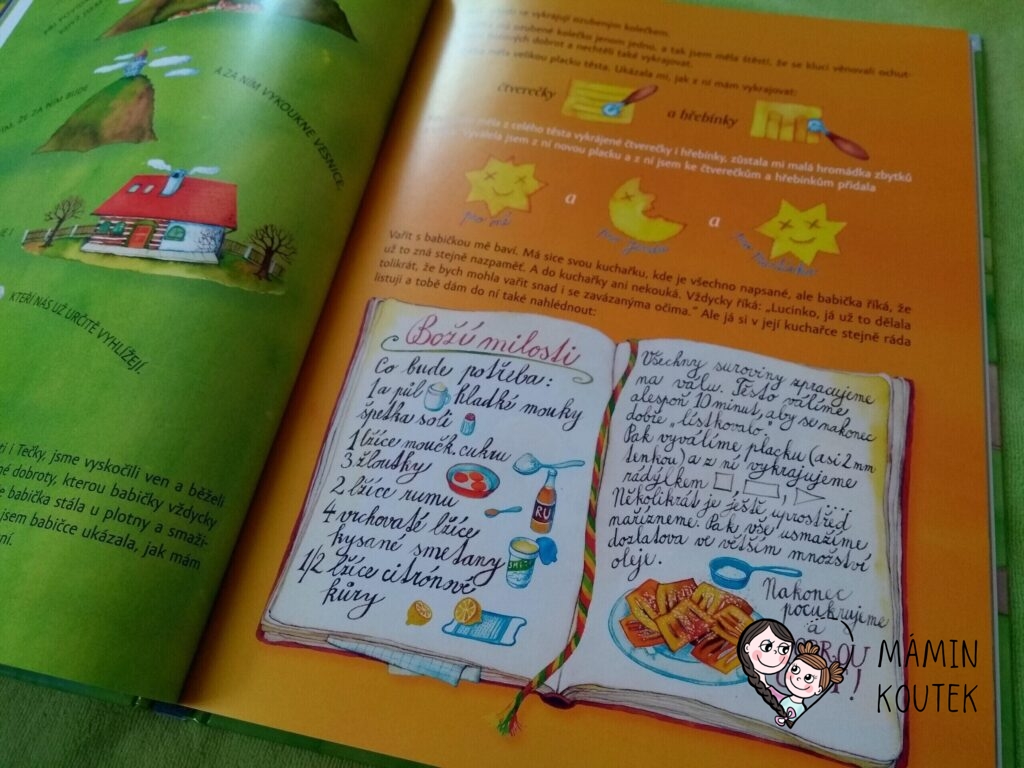 A ZA NÍM VYKOUKNE VESNICE.
ŽE ZA NÍM BUDE
KTEŘÍ NÁS UŽ URČITĚ VYHLÍŽEJÍ.
ti i Tečky, jsme vyskočili ven a běželi
né dobroty, kterou babičky vždycky
e babička stála u plotny a smaži-
jsem babičce ukázala, jak mám
ní.
se vykrajují ozubeným kolečkem.
ozubené kolečko jenom jedno, a tak jsem měla štěstí, že se kluci věnovali ochut-
dobrot a nechtěli také vykrajovat.
velikou placku těsta. Ukázala mi, jak z ní mám vykrajovat:
čtverečky
a hřebínky
měla z celého těsta vykrájené čtverečky i hřebínky, zůstala mi malá hromádka zbytků
Vyválela jsem z ní novou placku a z ní jsem ke čtverečkům a hřebínkům přidala
a
a
pro mě
Vařit s babičkou mě baví. Má sice svou kuchařku, kde je všechno napsané, ale babička říká, že
už to zná stejně nazpaměť. A do kuchařky ani nekouká. Vždycky říká: „Lucinko, já už to dělala
tolikrát, že bych mohla vařit snad i se zavázanýma očima." Ale já si v její kuchařce stejně ráda
listuji a tobě dám do ní také nahlédnout:
Boží milosti
Co bude potřeba:
1 a půl hladké mouky
špetka soli
1 lžíce moučk. cukru
3 žloutky
2 lžíce rumu
RU
4 vrchovaté lžíce
kysané smetany
1/2 lžíce citrónové
kůry
Všechny suroviny zpracujeme
na válu. Těsto válíme
alespoň 10 minut, aby se nakonec
dobře „lístkovalo".
Pak vyválíme placku (asi 2 mm
tenkou) a z ní vykrajujeme
rádýlkem
Několikrát je ještě uprostřed
nařízneme. Pak vše usmažíme
dozlatova ve větším množství
oleje.
Nakonec
pocukrujeme
a
MÁMIN
KOUTEK